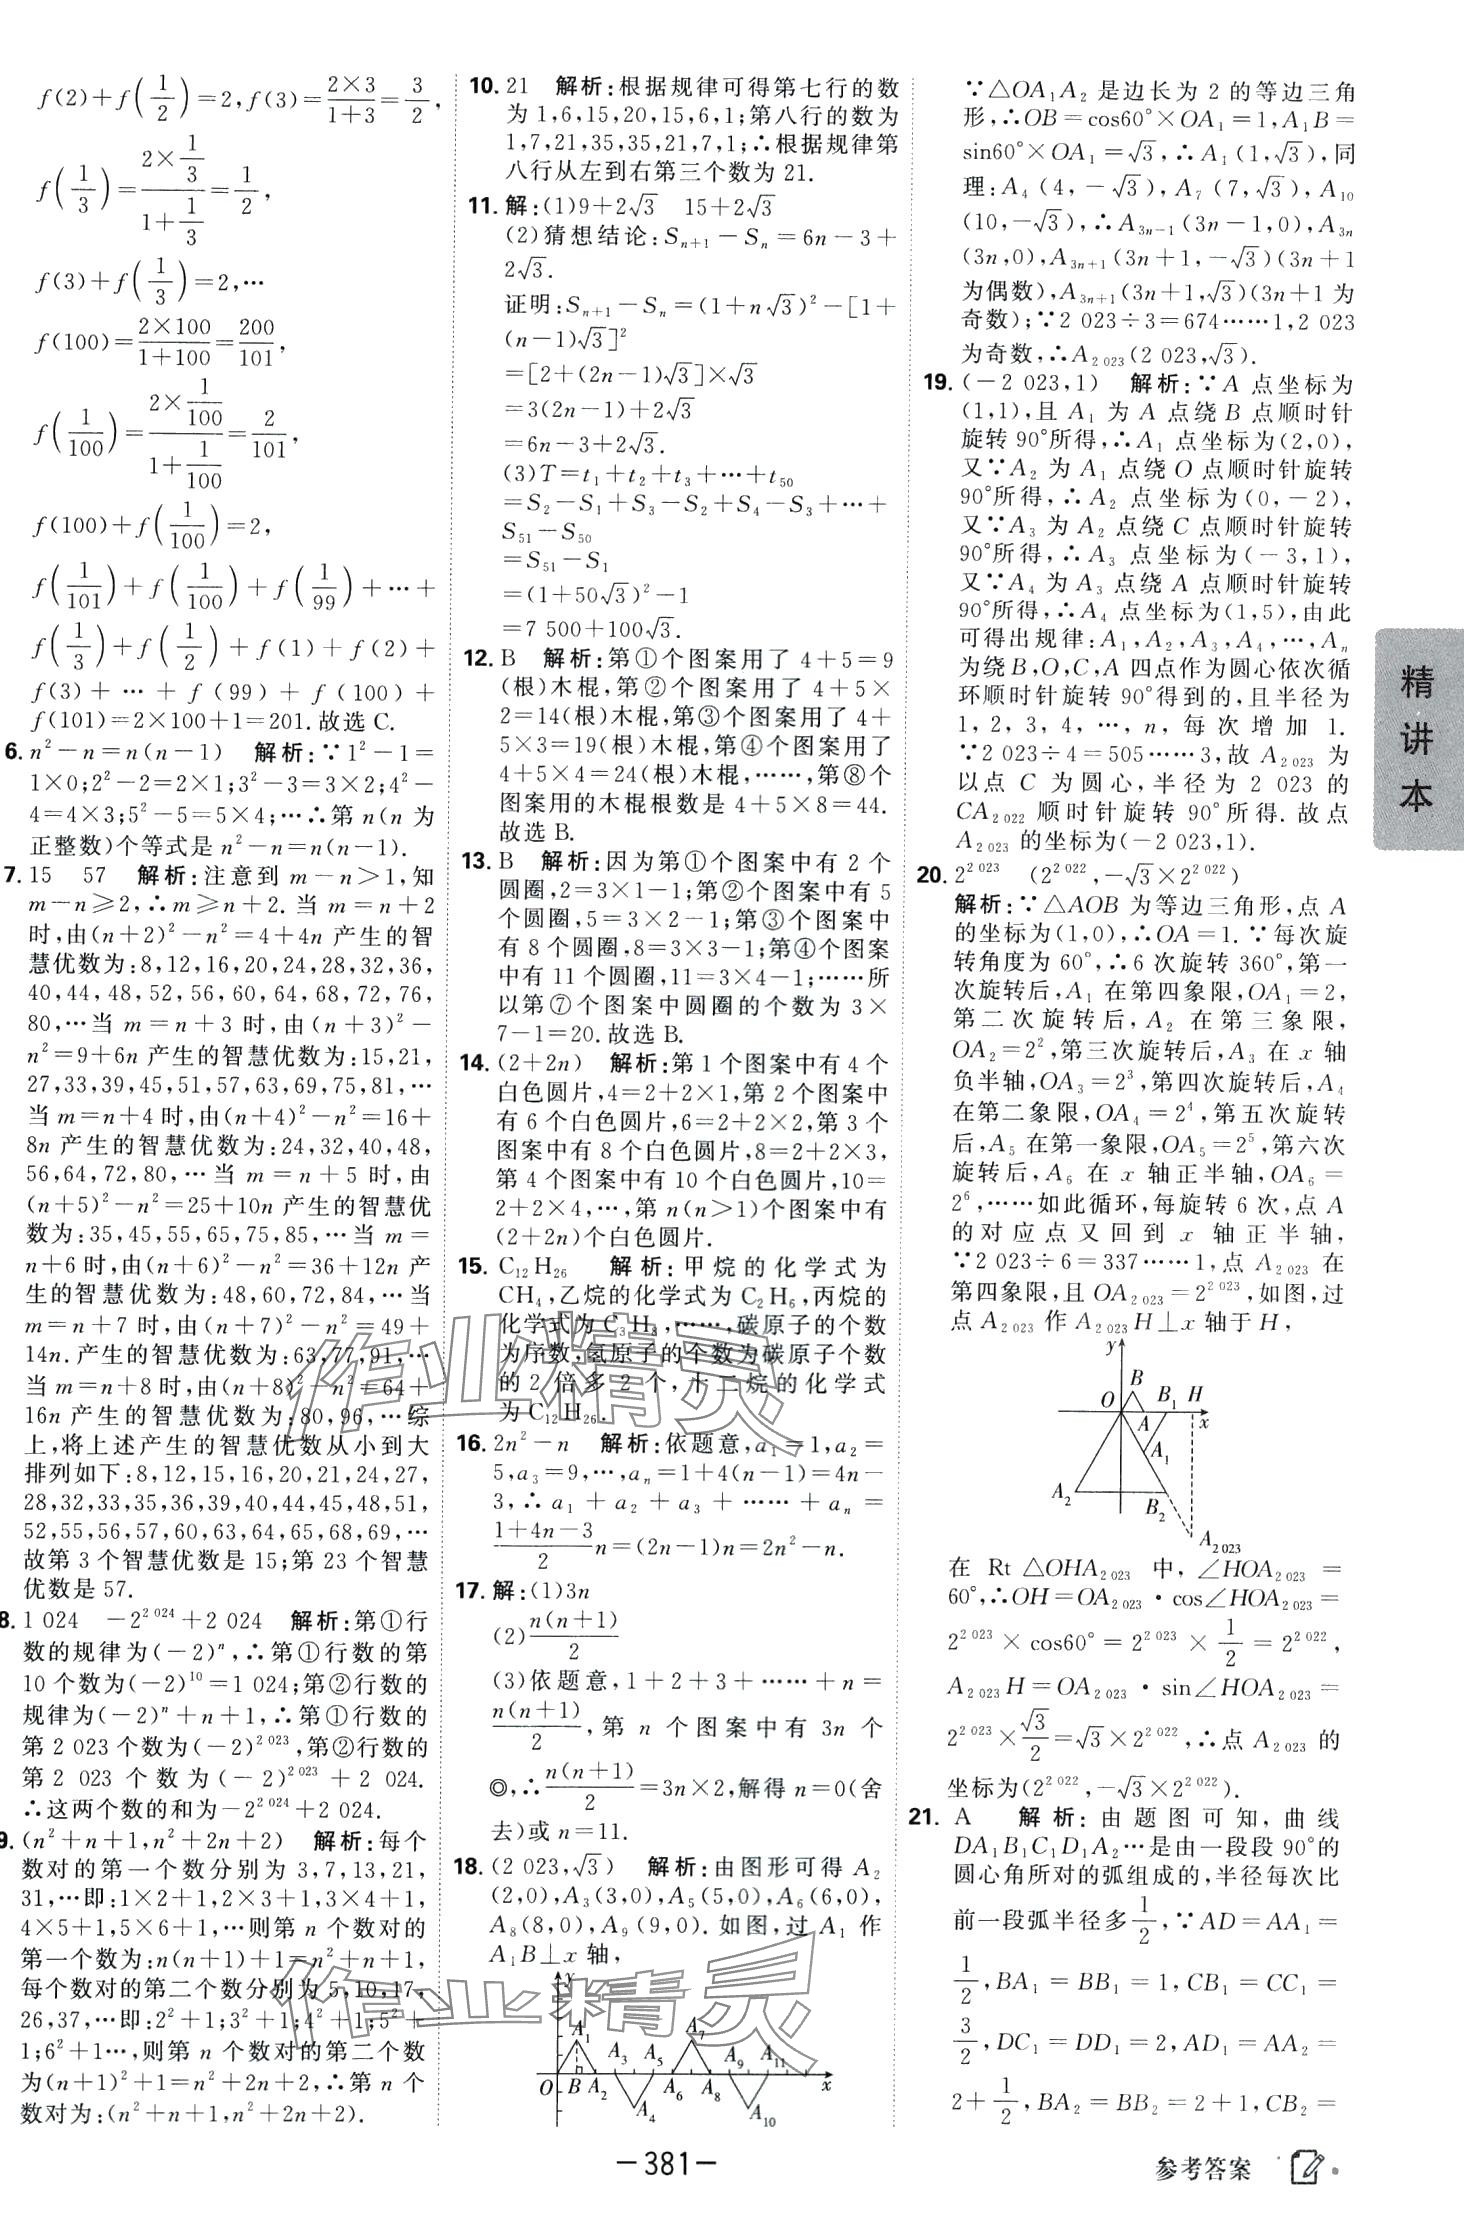 f(2)+f(1/2)=2,f(3)=(2×3)/(1+3)=3/2,
f(1/3)=(2×1/3)/(1+1/3)=1/2,
f(3)+f(1/3)=2,…
f(100)=(2×100)/(1+100)=200/101,
f(1/100)=(2×1/100)/(1+1/100)=2/101,
f(100)+f(1/100)=2,
f(1/101)+f(1/100)+f(1/99)+…+
f(1/3)+f(1/2)+f(1)+f(2)+
f(3)+…+f(99)+f(100)+
f(101)=2×100+1=201.故选C.
6. n²-n=n(n-1) 解析:∵1²-1=
1×0;2²-2=2×1;3²-3=3×2;4²-
4=4×3;5²-5=5×4;…∴第n(n为
正整数)个等式是n²-n=n(n-1).
7. 15 57 解析:注意到m-n>1,知
m-n≥2,∴m≥n+2.当m=n+2
时,由(n+2)²-n²=4+4n产生的智
慧优数为:8,12,16,20,24,28,32,36,
40,44,48,52,56,60,64,68,72,76,
80,…当m=n+3时,由(n+3)²-
n²=9+6n产生的智慧优数为:15,21,
27,33,39,45,51,57,63,69,75,81,…
当m=n+4时,由(n+4)²-n²=16+
8n产生的智慧优数为:24,32,40,48,
56,64,72,80,…当m=n+5时,由
(n+5)²-n²=25+10n产生的智慧优
数为:35,45,55,65,75,85,…当m=
n+6时,由(n+6)²-n²=36+12n产
生的智慧优数为:48,60,72,84,…当
m=n+7时,由(n+7)²-n²=49+
14n.产生的智慧优数为:63,77,91,…
当m=n+8时,由(n+8)²-n²=64+
16n产生的智慧优数为:80,96,…综
上,将上述产生的智慧优数从小到大
排列如下:8,12,15,16,20,21,24,27,
28,32,33,35,36,39,40,44,45,48,51,
52,55,56,57,60,63,64,65,68,69,…
故第3个智慧优数是15;第23个智慧
优数是57.
8. 1 024 -2^{2 024}+2 024 解析:第①行
数的规律为(-2)ⁿ,∴第①行数的第
10个数为(-2)¹⁰=1 024;第②行数的
规律为(-2)ⁿ+n+1,∴第①行数的
第2 023个数为(-2)^{2 023},第②行数的
第2 023个数为(-2)^{2 023}+2 024.
∴这两个数的和为-2^{2 024}+2 024.
9. (n²+n+1,n²+2n+2) 解析:每个
数对的第一个数分别为3,7,13,21,
31,…即:1×2+1,2×3+1,3×4+1,
4×5+1,5×6+1,…则第n个数对的
第一个数为:n(n+1)+1=n²+n+1,
每个数对的第二个数分别为5,10,17,
26,37,…即:2²+1;3²+1;4²+1;5²+
1;6²+1…,则第n个数对的第二个数
为(n+1)²+1=n²+2n+2,∴第n个
数对为:(n²+n+1,n²+2n+2).
10. 21 解析:根据规律可得第七行的数
为1,6,15,20,15,6,1;第八行的数为
1,7,21,35,35,21,7,1;∴根据规律第
八行从左到右第三个数为21.
11. 解:(1)9+2√3 15+2√3
(2)猜想结论:Sₙ₊₁-Sₙ=6n-3+
2√3.
证明:Sₙ₊₁-Sₙ=(1+n√3)²-[1+
(n-1)√3]²
=[2+(2n-1)√3]×√3
=3(2n-1)+2√3
=6n-3+2√3.
(3)T=t₁+t₂+t₃+…+t₅₀
=S₂-S₁+S₃-S₂+S₄-S₃+…+
S₅₁-S₅₀
=S₅₁-S₁
=(1+50√3)²-1
=7 500+100√3.
12. B 解析:第①个图案用了4+5=9
(根)木棍,第②个图案用了4+5×
2=14(根)木棍,第③个图案用了4+
5×3=19(根)木棍,第④个图案用了
4+5×4=24(根)木棍,……,第⑧个
图案用的木棍根数是4+5×8=44.
故选B.
13. B 解析:因为第①个图案中有2个
圆圈,2=3×1-1;第②个图案中有5
个圆圈,5=3×2-1;第③个图案中
有8个圆圈,8=3×3-1;第④个图案
中有11个圆圈,11=3×4-1;……所
以第⑦个图案中圆圈的个数为3×
7-1=20.故选B.
14. (2+2n) 解析:第1个图案中有4个
白色圆片,4=2+2×1,第2个图案中
有6个白色圆片,6=2+2×2,第3个
图案中有8个白色圆片,8=2+2×3,
第4个图案中有10个白色圆片,10=
2+2×4,…,第n(n>1)个图案中有
(2+2n)个白色圆片.
15. C₁₂H₂₆ 解析:甲烷的化学式为
CH₄,乙烷的化学式为C₂H₆,丙烷的
化学式为C₃H₈,……,碳原子的个数
为序数,氢原子的个数为碳原子个数
的2倍多2个,十二烷的化学式
为C₁₂H₂₆.
16. 2n²-n 解析:依题意,a₁=1,a₂=
5,a₃=9,…,aₙ=1+4(n-1)=4n-
3,∴a₁+a₂+a₃+……+aₙ=
(1+4n-3)/2 n=(2n-1)n=2n²-n.
17. 解:(1)3n
(2)n(n+1)/2
(3)依题意,1+2+3+……+n=
n(n+1)/2,第n个图案中有3n个
◎,∴n(n+1)/2=3n×2,解得n=0(舍
去)或n=11.
18. (2 023,√3) 解析:由图形可得A₂
(2,0),A₃(3,0),A₅(5,0),A₆(6,0),
A₈(8,0),A₉(9,0).如图,过A₁作
A₁B⊥x轴,
y
A₁ A₃ A₅ A₇ A₉ A₁₁
O B A₂ A₄ A₆ A₈ A₁₀ x
∵△OA₁A₂是边长为2的等边三角
形,∴OB=cos60°×OA₁=1,A₁B=
sin60°×OA₁=√3,∴A₁(1,√3),同
理:A₄(4,-√3),A₇(7,√3),A₁₀
(10,-√3),∴A₃ₙ₋₁(3n-1,0),A₃ₙ
(3n,0),A₃ₙ₊₁(3n+1,-√3)(3n+1
为偶数),A₃ₙ₊₁(3n+1,√3)(3n+1为
奇数);∵2 023÷3=674……1,2 023
为奇数,∴A_{2 023}(2 023,√3).
19. (-2 023,1) 解析:∵A点坐标为
(1,1),且A₁为A点绕B点顺时针
旋转90°所得,∴A₁点坐标为(2,0),
又∵A₂为A₁点绕O点顺时针旋转
90°所得,∴A₂点坐标为(0,-2),
又∵A₃为A₂点绕C点顺时针旋转
90°所得,∴A₃点坐标为(-3,1),
又∵A₄为A₃点绕A点顺时针旋转
90°所得,∴A₄点坐标为(1,5),由此
可得出规律:A₁,A₂,A₃,A₄,…,Aₙ
为绕B,O,C,A四点作为圆心依次循
环顺时针旋转90°得到的,且半径为
1,2,3,4,…,n,每次增加1.
∵2 023÷4=505……3,故A_{2 023}为
以点C为圆心,半径为2 023的
CA_{2 022}顺时针旋转90°所得.故点
A_{2 023}的坐标为(-2 023,1).
20. 2^{2 023} (2^{2 022},-√3×2^{2 022})
解析:∵△AOB为等边三角形,点A
的坐标为(1,0),∴OA=1.∵每次旋
转角度为60°,∴6次旋转360°,第一
次旋转后,A₁在第四象限,OA₁=2,
第二次旋转后,A₂在第三象限,
OA₂=2²,第三次旋转后,A₃在x轴
负半轴,OA₃=2³,第四次旋转后,A₄
在第二象限,OA₄=2⁴,第五次旋转
后,A₅在第一象限,OA₅=2⁵,第六次
旋转后,A₆在x轴正半轴,OA₆=
2⁶,……如此循环,每旋转6次,点A
的对应点又回到x轴正半轴,
∵2 023÷6=337……1,点A_{2 023}在
第四象限,且OA_{2 023}=2^{2 023},如图,过
点A_{2 023}作A_{2 023}H⊥x轴于H,
y
B
O A B₁ H x
A₁
A₂ B₂
A_{2 023}
在Rt△OHA_{2 023}中,∠HOA_{2 023}=
60°,∴OH=OA_{2 023}·cos∠HOA_{2 023}=
2^{2 023}×cos60°=2^{2 023}×1/2=2^{2 022},
A_{2 023}H=OA_{2 023}·sin∠HOA_{2 023}=
2^{2 023}×√3/2=√3×2^{2 022},∴点A_{2 023}的
坐标为(2^{2 022},-√3×2^{2 022}).
21. A 解析:由题图可知,曲线
DA₁B₁C₁D₁A₂…是由一段段90°的
圆心角所对的弧组成的,半径每次比
前一段弧半径多1/2,∵AD=AA₁=
1/2,BA₁=BB₁=1,CB₁=CC₁=
3/2,DC₁=DD₁=2,AD₁=AA₂=
2+1/2,BA₂=BB₂=2+1,CB₂=
精讲本
作业精灵
作业精灵
-381-
参考答案